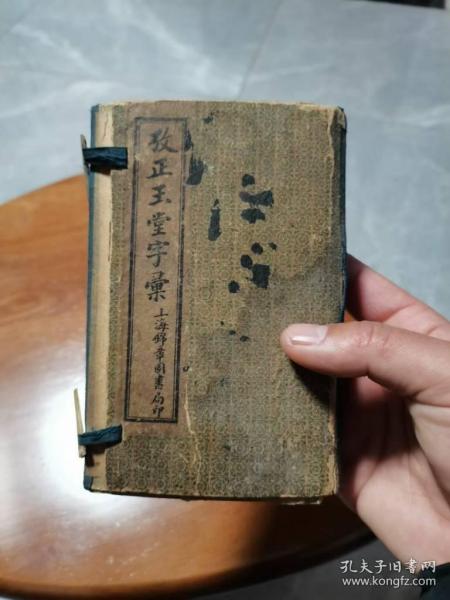 攷正玉堂字彙
上海錦章圖書局印
孔夫子旧书网
www.kongfz.com